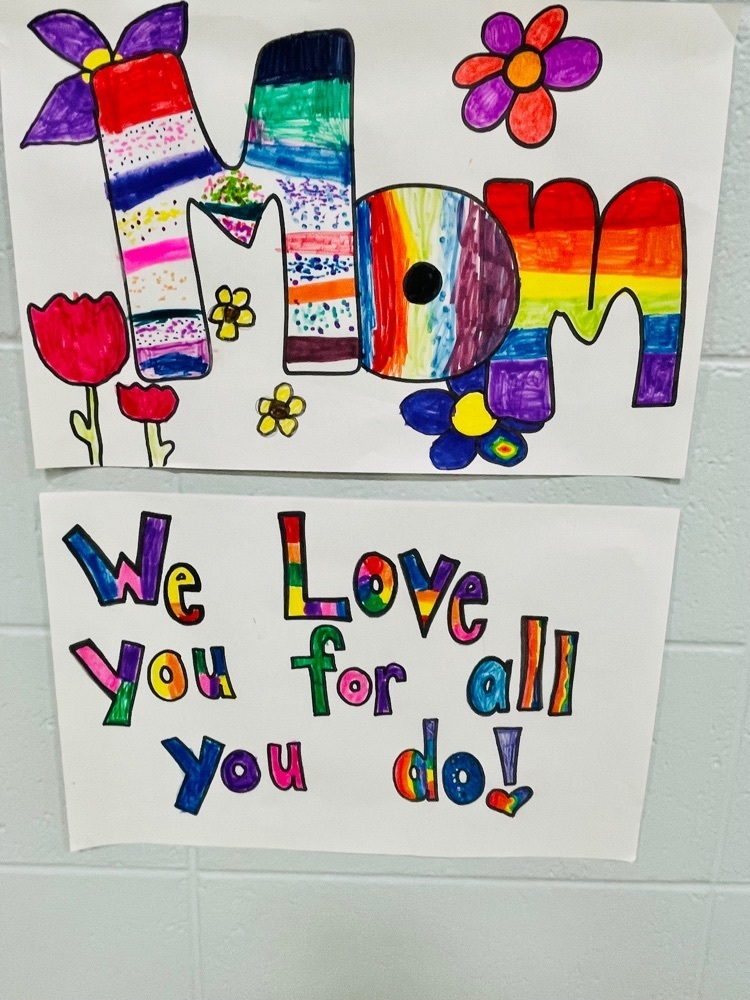 Mom
We Love
you for all
you do!